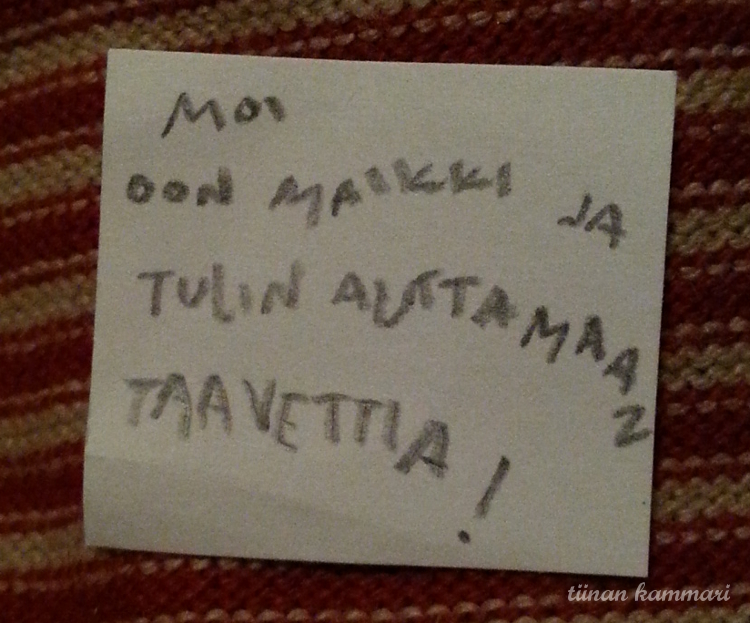 MOI
OON MAIKKI JA
TULIN AUTTAMAAN
TAAVETTIA!
tiinan kammari